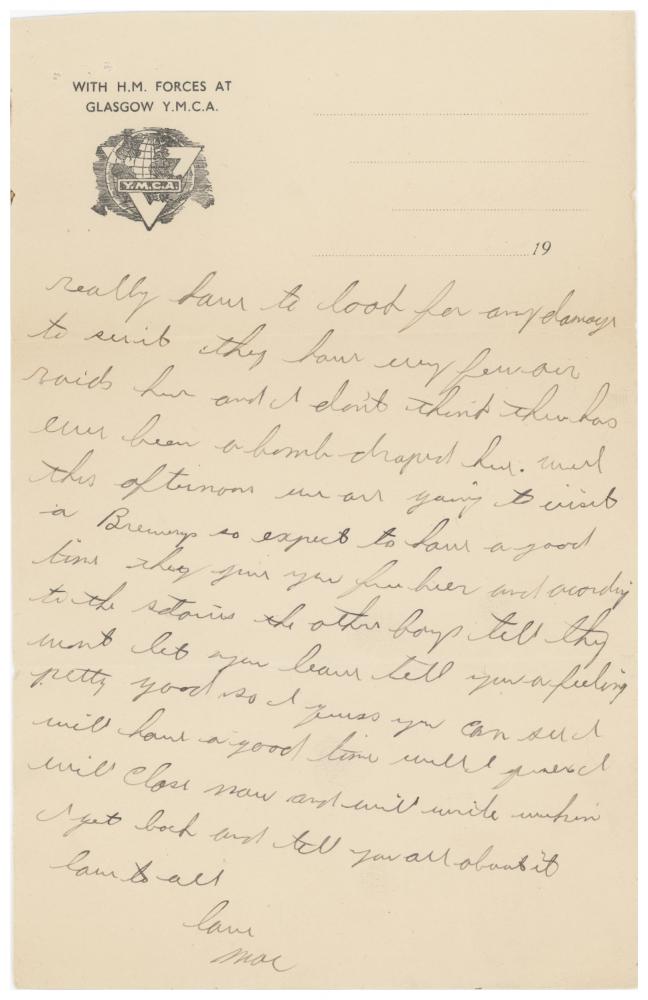 WITH H.M. FORCES AT
GLASGOW Y.M.C.A.
Y.M.C.A.
19
really have to look for any damage
to see it they have very few air
raids here and I don't think there has
ever been a bomb droped here. well
this afternoon we are going to visit
a Brewery so expect to have a good
time they give you free beer and acordig
to the stories the other boys tell they
wont let you leave tell you a feeling
petty good so I guess you can see I
will have a good time well I guess I
will close now and will write when
I get back and tell you all about it
love to all
love
Mac